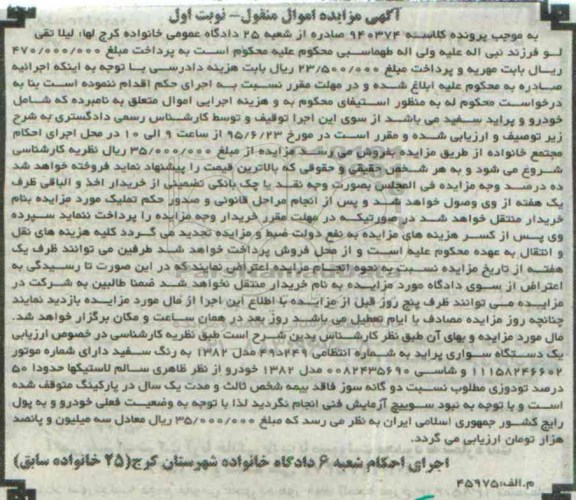 آگهی مزایده اموال منقول - نوبت اول
به موجب پرونده کلاسه ۹۴۰۳۷۴ صادره از شعبه ۲۵ دادگاه عمومی خانواده کرج لها: لیلا تقی
لو فرزند نبی اله علیه ولی اله طهماسبی محکوم علیه محکوم است به پرداخت مبلغ ۴۷۰/۰۰۰/۰۰۰
ریال بابت مهریه و پرداخت مبلغ ۲۳/۵۰۰/۰۰۰ ریال بابت هزینه دادرسی با توجه به اینکه اجرائیه
صادره به محکوم علیه ابلاغ شده و در مهلت مقرر نسبت به اجرای حکم اقدام ننموده است بنا به
درخواست محکوم له به منظور استیفای محکوم به و هزینه اجرایی اموال متعلق به نامبرده که شامل
خودرو و پراید سفید می باشد از سوی این اجرا توقیف و توسط کارشناس رسمی دادگستری به شرح
زیر توصیف و ارزیابی شده و مقرر است در مورخ ۹۵/۶/۲۳ از ساعت ۹ الی ۱۰ در محل اجرای احکام
مجتمع خانواده از طریق مزایده بفروش می رسد مزایده از مبلغ ۳۵/۰۰۰/۰۰۰ ریال نظریه کارشناسی
شروع می شود و به هر شخص حقیقی و حقوقی که بالاترین قیمت را پیشنهاد نماید فروخته خواهد شد
ده درصد وجه مزایده فی المجلس بصورت وجه نقد یا چک بانکی تضمینی از خریدار اخذ و الباقی ظرف
یک هفته از وی وصول خواهد شد و پس از انجام مراحل قانونی و صدور حکم تملیک مورد مزایده بنام
خریدار منتقل خواهد شد در صورتیکه در مهلت مقرر خریدار وجه مزایده را پرداخت ننماید سپرده
وی پس از کسر هزینه های مزایده به نفع دولت ضبط و مزایده تجدید می گردد کلیه هزینه های نقل
و انتقال به عهده محکوم علیه است و از محل فروش پرداخت خواهد شد طرفین می توانند ظرف یک
هفته از تاریخ مزایده نسبت به نحوه انجام مزایده اعتراض نمایند که در این صورت تا رسیدگی به
اعتراض از سوی دادگاه مورد مزایده به نام خریدار منتقل نخواهد شد ضمنا طالبین به شرکت در
مزایده می توانند ظرف پنج روز قبل از مزایده با اطلاع این اجرا از مال مورد مزایده بازدید نمایند
چنانچه روز مزایده مصادف با ایام تعطیل می باشد روز بعد در همان ساعت و مکان برگزار خواهد شد.
مال مورد مزایده و بهای آن طبق نظر کارشناس بدین شرح است طبق نظریه کارشناسی در خصوص ارزیابی
یک دستگاه سواری پراید به شماره انتظامی ۴۹د۲۴۹ مدل ۱۳۸۲ به رنگ سفید دارای شماره موتور
۱۱۱۵۸۲۴۶۶۰۲ و شاسی ۰۰۸۲۴۳۵۶۹۰ مدل ۱۳۸۲ خودرو از نظر ظاهری سالم لاستیکها حدودا ۵۰
درصد تودوزی مطلوب نسبت دو گانه سوز فاقد بیمه شخص ثالث و مدت یک سال در پارکینگ متوقف شده
است و با توجه به نبود سوییچ آزمایش فنی انجام نگردید لذا با توجه به وضعیت فعلی خودرو و به پول
رایج کشور جمهوری اسلامی ایران به نظر می رسد که مبلغ ۳۵/۰۰۰/۰۰۰ ریال معادل سه میلیون و پانصد
هزار تومان ارزیابی می گردد.
اجرای احکام شعبه ۶ دادگاه خانواده شهرستان کرج (۲۵ خانواده سابق)
م.الف:۴۵۹۷۵